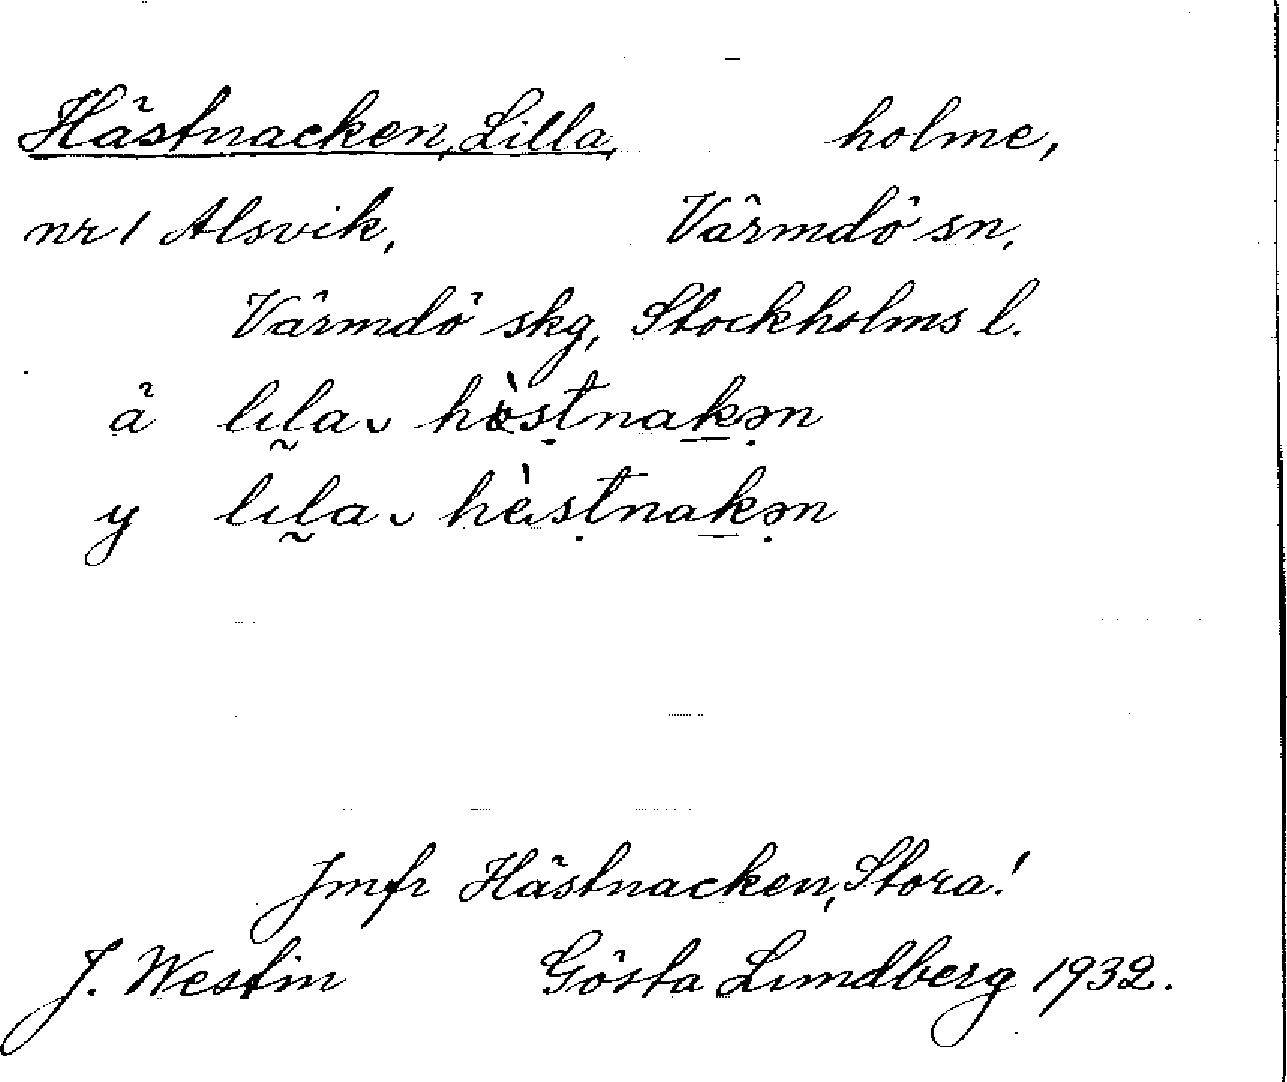 Hästnacken, Lilla, holme,
nr 1 Alsvik, Värmdö sn,
Värmdö skg, Stockholms l.
ä lıl̰aᵕ hö̀sṭnak̲ə̣n
y lıl̰aᵕ hèsṭnak̲ə̣n
Jmfr Hästnacken, Stora!
J. Westin Gösta Lundberg 1932.